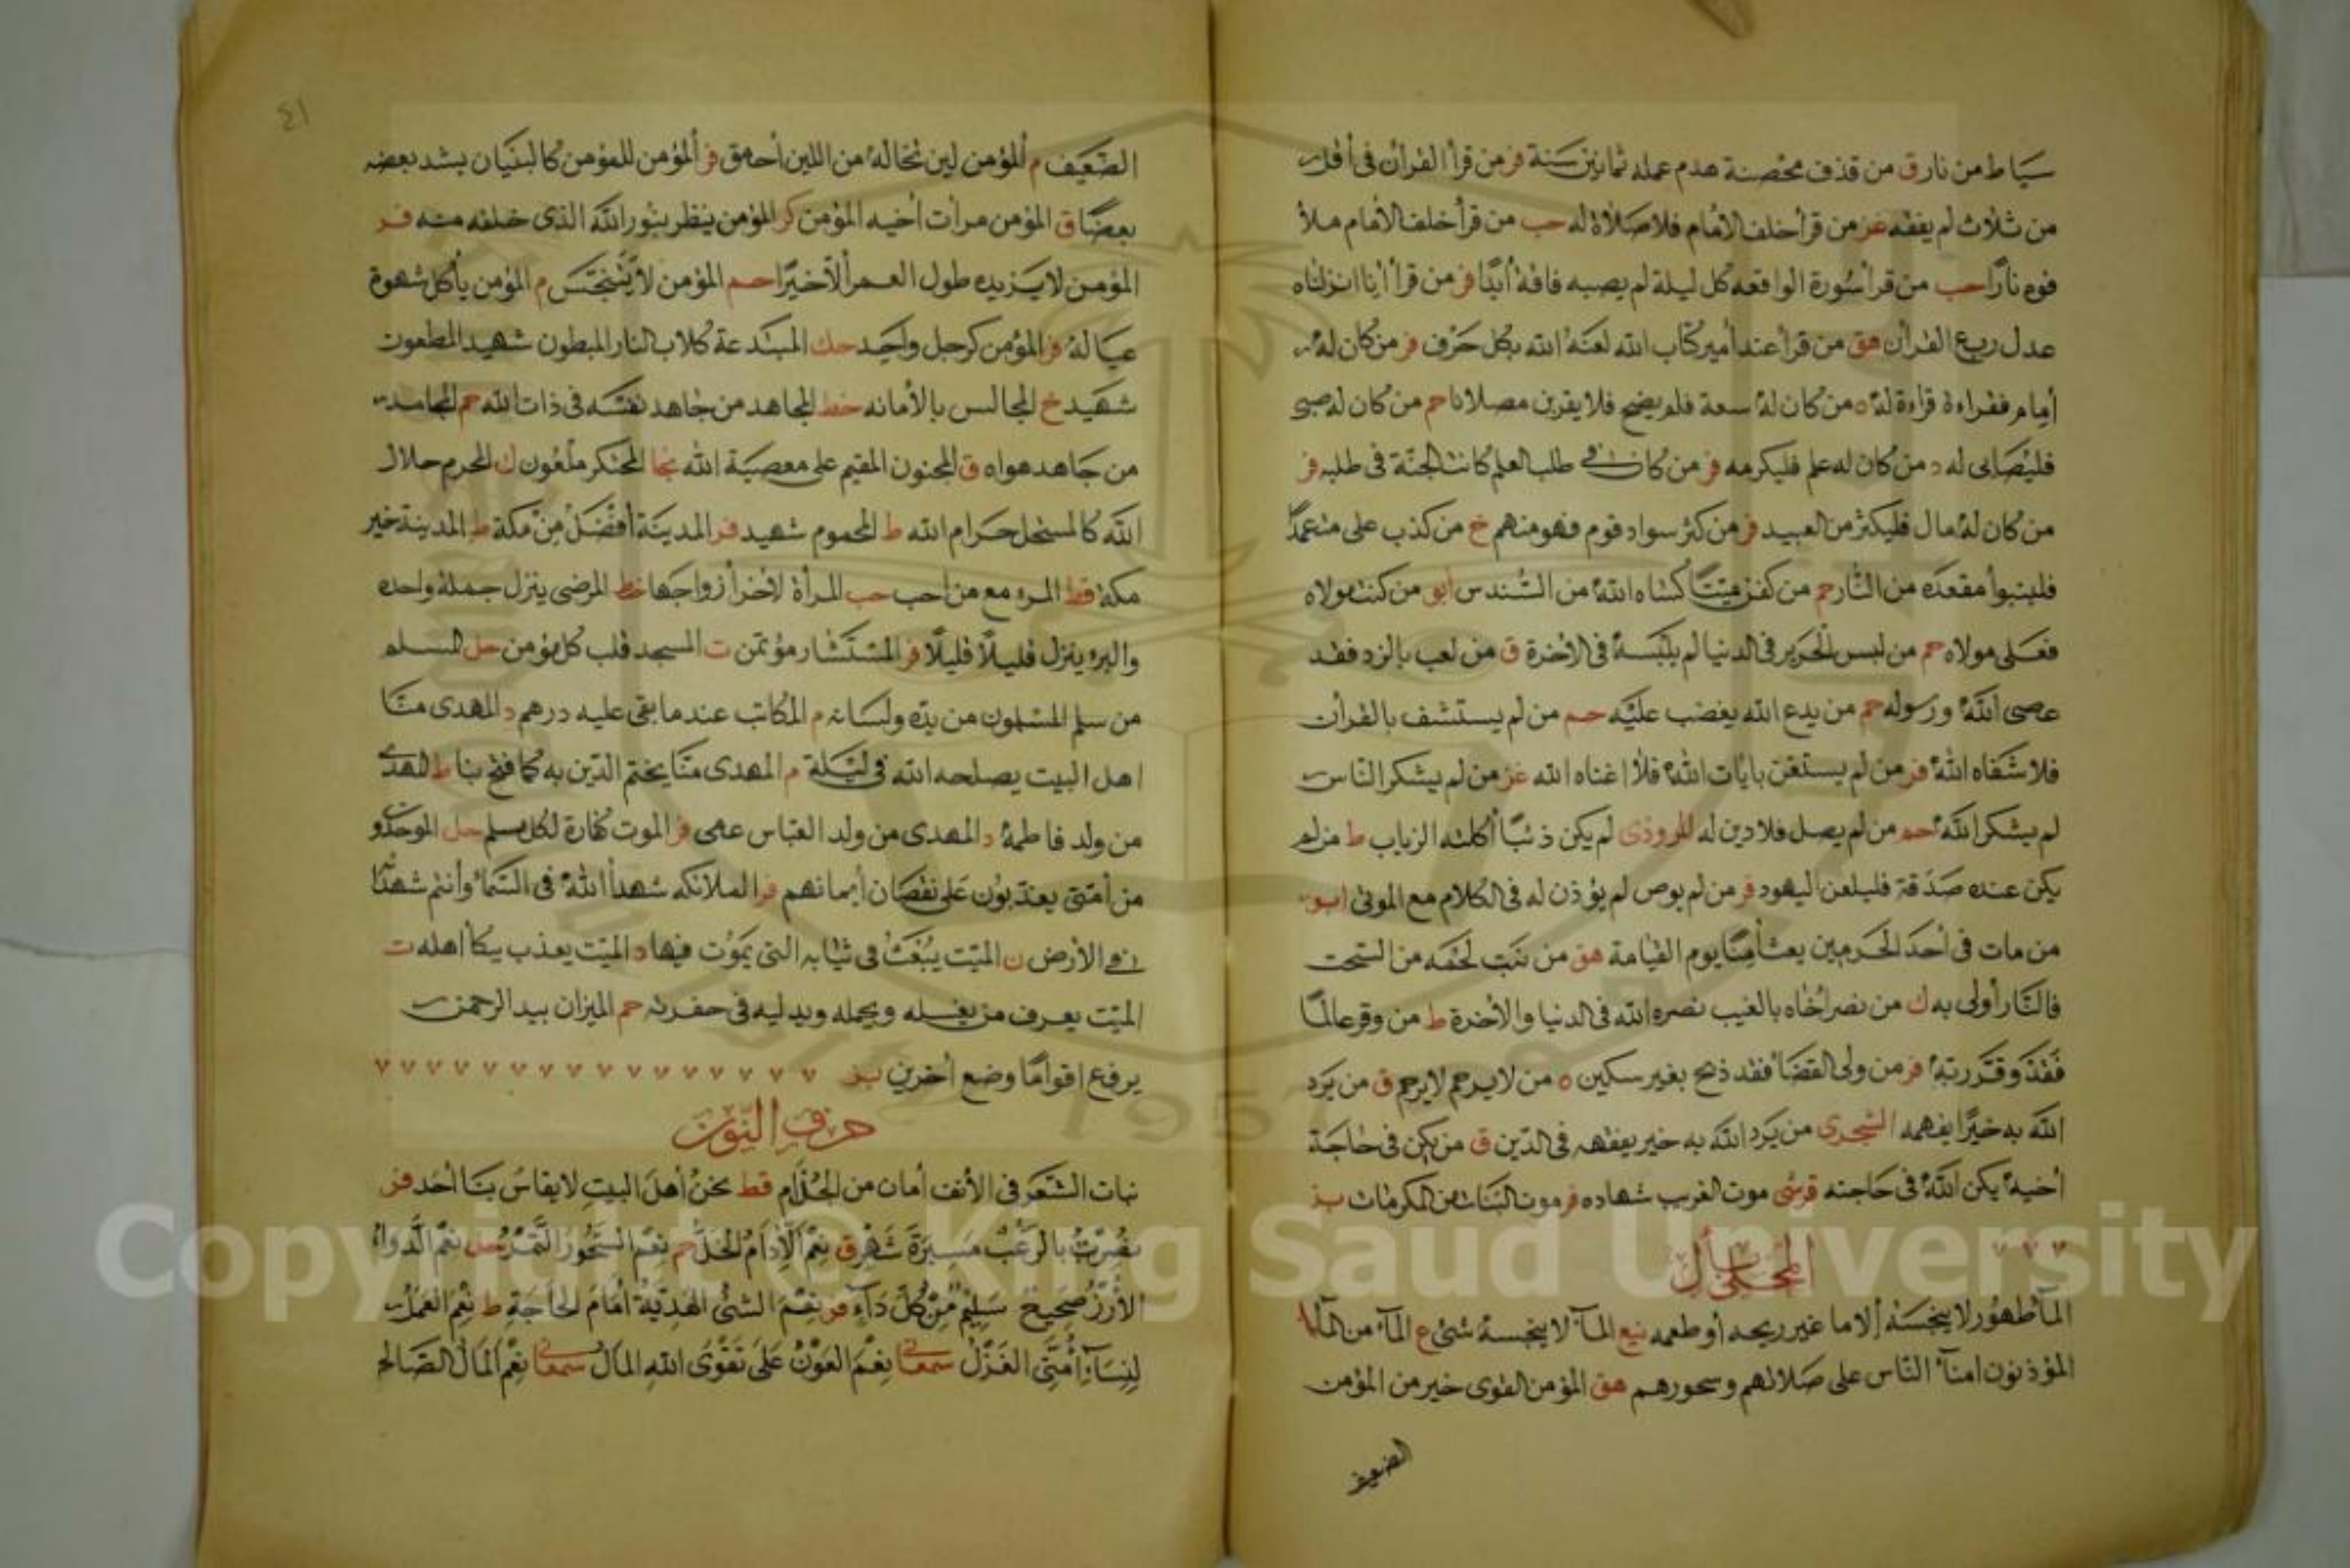 سياط من نار ق من قذف محصنة هدم عمله ثمانين سنة فر من قرأ القرأن فى أقل
من ثلاث لم يفقه عز من قرأ خلف الأمام فلا صلاة له حب من قرأ خلف الأمام ملأ
فوه نارًا حب من قرأ سورة الواقعه كل ليلة لم يصبه فاقة أبدًا فر من قرأ انا انزلناه
عدل ربع القرأن هق من قرأ عند أمير كتاب الله لعنه الله بكل حرف فر من كان له
أمام فقراءة قراءة له ه من كان له سعة فلم يضح فلا يقربن مصلانا حم من كان له صبى
فليصابى له د من كان له علم فليكرمه فر من كان فى طلب العلم كانت الجنة فى طلبه فر
من كان له مال فليكثر من العبيد فر من كثر سواد قوم فهو منهم خ من كذب على متعمدًا
فليتبوأ مقعده من النار حم من كفن ميتًا كساه الله من السندس أبو من كنت مولاه
فعلى مولاه حم من لبس الحرير فى الدنيا لم يلبسه فى الأخرة ق من لعب بالنرد فقد
عصى الله ورسوله حم من يدع الله يغضب عليه حم من لم يستشف بالقرأن
فلا شفاه الله فر من لم يستغن بايات الله فلا اغناه الله عز من لم يشكر الناس
لم يشكر الله حم من لم يصل فلا دين له المروذى لم يكن ذئبًا أكلته الزياب ط من لم
يكن عنده صدقة فليلعن اليهود فر من لم يوص لم يؤذن له فى الكلام مع الموتى ابو
من مات فى أحد الحرمين بعث أمنًا يوم القيامة هق من نبت لحمه من السحت
فالنار أولى به ك من نصر أخاه بالغيب نصره الله فى الدنيا والأخرة ط من وقر عالمًا
فقد وقر ربه فر من ولى القضأ فقد ذبح بغير سكين ه من لا يرحم لا يرحم ق من يرد
الله به خيرًا يفهمه السجزى من يرد الله به خير يفقهه فى الدين ق من يكن فى حاجة
أخيه يكن الله فى حاجته قرشى موت الغريب شهاده فر موت البنات من المكرمات بز
المحلى بأل
المآ طهور لا ينجسه ألا ما غير ريحه أو طعمه نيع المآ لا ينجسه شئ ع المآ من المآ
المؤذنون امنآ الناس على صلاتهم وسحورهم هق المؤمن القوى خير من المؤمن
الضعيف
٤١
الضعيف م ألمؤمن لين تخاله من اللين أحمق فر ألمؤمن للمؤمن كالبنيان يشد بعضه
بعضًا ق المؤمن مرأت أخيه المؤمن كر المؤمن ينظر بنور الله الذى خلقه منه فر
المؤمن لا يزيده طول العمر ألا خيرًا حم المؤمن لا ينجس م المؤمن يأكل شهوة
عياله فر المؤمن كرجل واحد حك المبتدعة كلاب النار المبطون شهيد المطعون
شهيد خ المجالس بالأمانه خط المجاهد من جاهد نفسه فى ذات الله حم المجاهد
من جاهد هواه ق المجنون المقيم على معصية الله نجا المحتكر ملعون ك المحرم حلال
الله كالمستحل حرام الله ط المحموم شهيد فر المدينة أفضل من مكة ط المدينة خير
مكة قط المرء مع من احب حب المرأة لأخر أزواجها خط المرضى ينزل جملة واحده
والبرء ينزل قليلًا قليلًا فر المستشار مؤتمن ت المسجد قلب كل مؤمن حل المسلم
من سلم المسلمون من يده ولسانه م المكاتب عند ما بقى عليه درهم د المهدى منا
اهل البيت يصلحه الله فى ليلة م المهدى منا يختم الدين به كما فتح بنا ط المهدى
من ولد فاطمة د المهدى من ولد العباس عمى فر الموت كفارة لكل مسلم حل الموحدون
من أمتى يعذبون على نقصان أيمانهم فر الملائكه شهدأ الله فى السمأ وأنتم شهدأ
فى الأرض ن الميت يبعث فى ثيابه التى يموت فيها د الميت يعذب ببكأ اهله ت
الميت يعرف من يغسله ويحمله ويدليه فى حفرته حم الميزان بيد الرحمن
يرفع اقوامًا وضع أخرين بز
حرف النون
نبات الشعر فى الأنف أمان من الجذام قط نحن أهل البيت لا يقاس بنا أحد فر
نصرت بالرعب مسيرة شهر ق نعم الأدام الخل حم نعم السحور التمر حل نعم الدواء
الأرز صحيح سليم من كل دآء فر نعم الشئ الهدية أمام الحاجة ط نعم العمل
لنسآء أمتى الغزل سمعانى نعم العون على تقوى الله المال سمعانى نعم المال الصالح
Copyright © King Saud University
1957